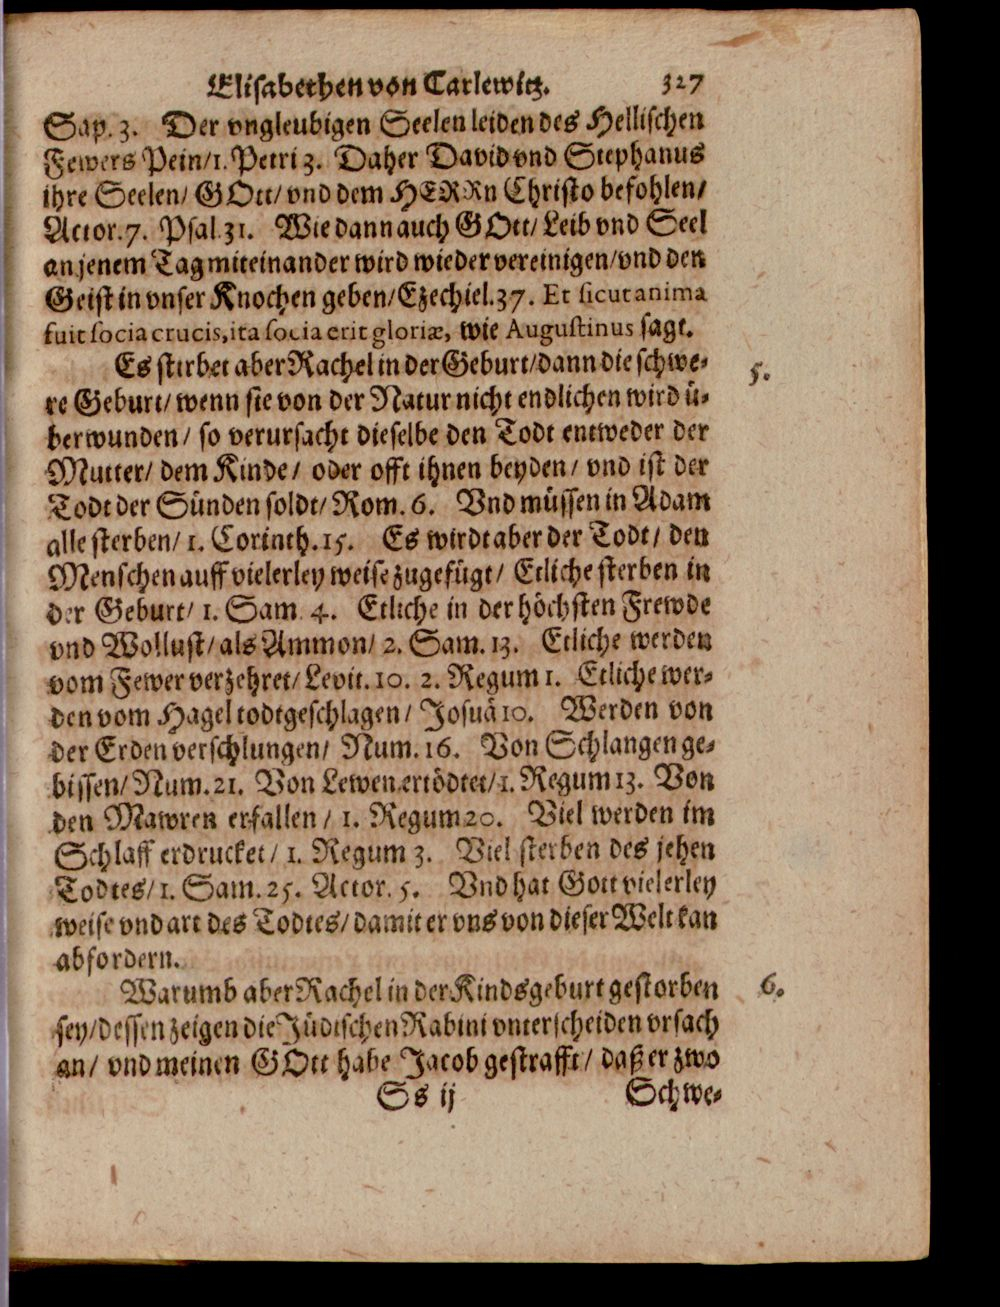 Elisabethen von Carlewitz. 327
Sap. 3. Der vngleubigen Seelen leiden des Hellischen
Fewers Pein/1. Petri 3. Daher David vnd Stephanus
ihre Seelen/ GOtt/ vnd dem HERRn Christo befohlen/
Actor. 7. Psal. 31. Wie dann auch GOtt/ Leib vnd Seel
an jenem Tag miteinander wird wieder vereinigen/vnd den
Geist in vnser Knochen geben/Ezechiel. 37. Et sicut anima
fuit socia crucis, ita socia erit gloriæ, wie Augustinus sagt.
Es stirbet aber Rachel in der Geburt/dann die schwe-
5.
re Geburt/ wenn sie von der Natur nicht endlichen wird ü-
berwunden/ so verursacht dieselbe den Todt entweder der
Mutter/ dem Kinde/ oder offt ihnen beyden/ vnd ist der
Todt der Sünden soldt/ Rom. 6. Vnd müssen in Adam
alle sterben/ 1. Corinth. 15. Es wirdt aber der Todt/ den
Menschen auff vielerley weise zugefügt/ Etliche sterben in
der Geburt/ 1. Sam. 4. Etliche in der höchsten Frewde
vnd Wollust/ als Ammon/ 2. Sam. 13. Etliche werden
vom Fewer verzehret/ Levit. 10. 2. Regum 1. Etliche wer-
den vom Hagel todtgeschlagen/ Josuä 10. Werden von
der Erden verschlungen/ Num. 16. Von Schlangen ge-
bissen/ Num. 21. Von Lewen ertödtet/1. Regum 13. Von
den Mawren erfallen/ 1. Regum 20. Viel werden im
Schlaff erdrucket/ 1. Regum 3. Viel sterben des jehen
Todtes/ 1. Sam. 25. Actor. 5. Vnd hat Gott vielerley
weise vnd art des Todtes/ damit er vns von dieser Welt kan
abfordern.
Warumb aber Rachel in der Kindsgeburt gestorben
6.
sey/dessen zeigen die Jüdischen Rabini vnterscheiden vrsach
an/ vnd meinen GOtt habe Jacob gestrafft/ daß er zwo
Ss ij Schwe-